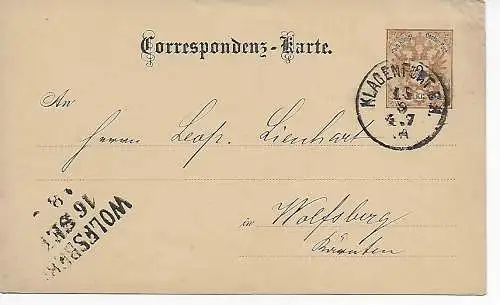 Correspondenz-Karte.
KLAGENFURT
An
Herrn Leop. Lienhart
in Wolfsberg
Kärnten
WOLFSBERG
16 SET
8